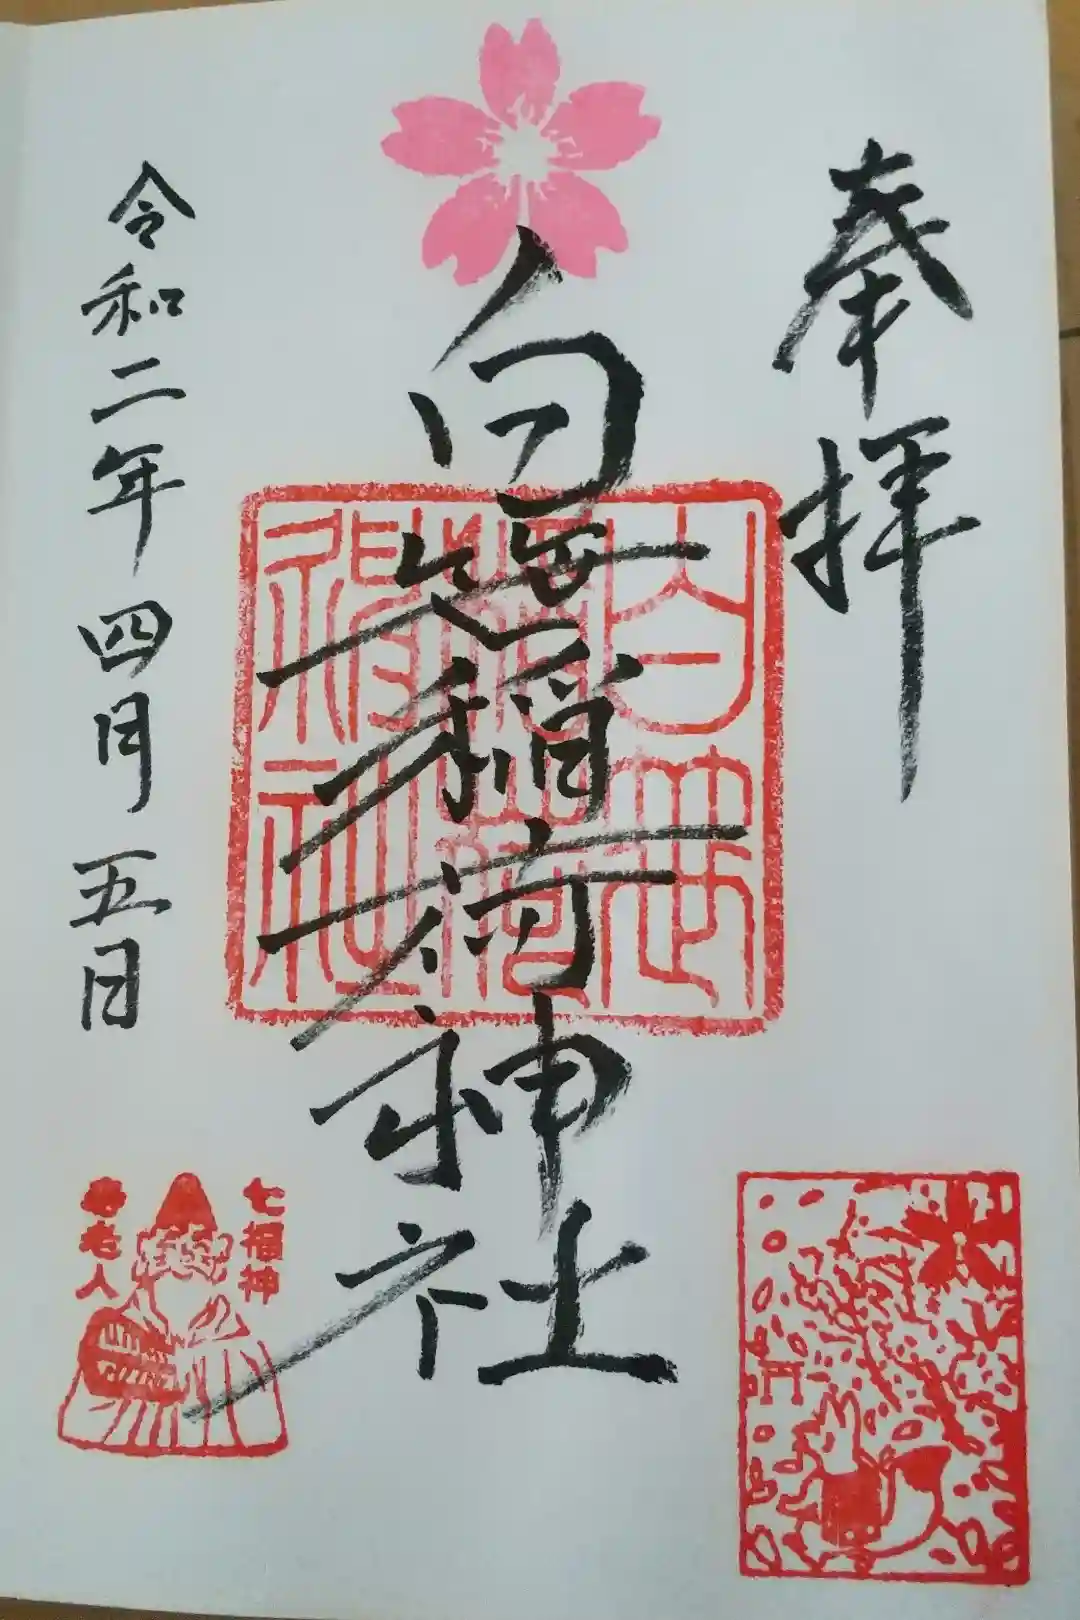 奉拝
白笹稲荷神社
白笹
稲荷
神社
令和二年四月五日
七福神
寿老人